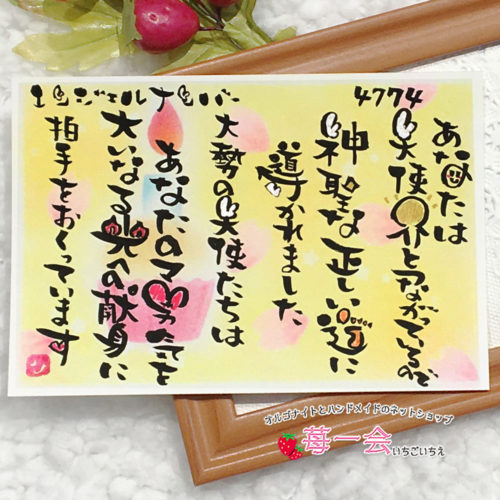 エンジェルナンバー
4774
あなたは
天使界とつながっているので
神聖な正しい道に
導かれました
大勢の天使たちは
あなたの勇気を
大いなる光への献身に
拍手をおくっています
オルゴナイトとハンドメイドのネットショップ
苺一会いちごいちえ